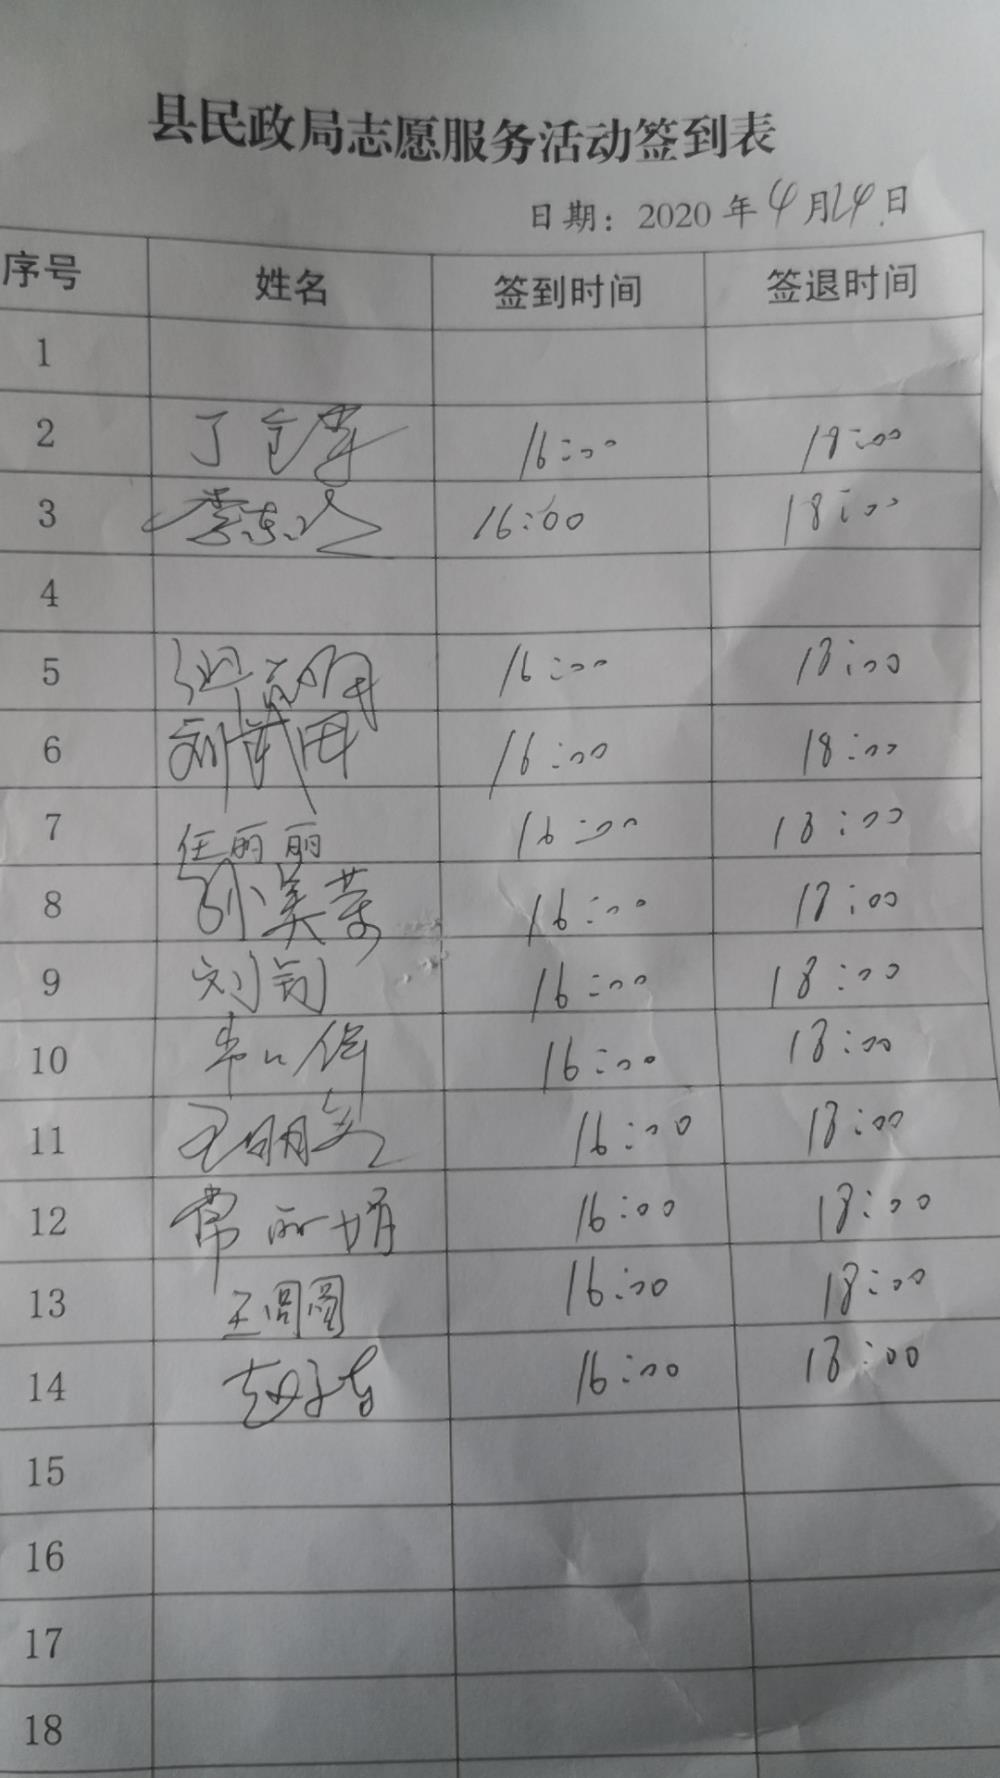 县民政局志愿服务活动签到表
日期：2020年4月24日
序号 姓名 签到时间 签退时间
1
2 丁 16:00 18:00
3 李东 16:00 18:00
4
5 16:00 18:00
6 刘武田 16:00 18:00
7 任丽丽 16:00 18:00
8 孙美荣 16:00 18:00
9 刘钊 16:00 18:00
10 16:00 18:00
11 王明 16:00 18:00
12 常丽娟 16:00 18:00
13 王圆圆 16:00 18:00
14 赵 16:00 18:00
15
16
17
18